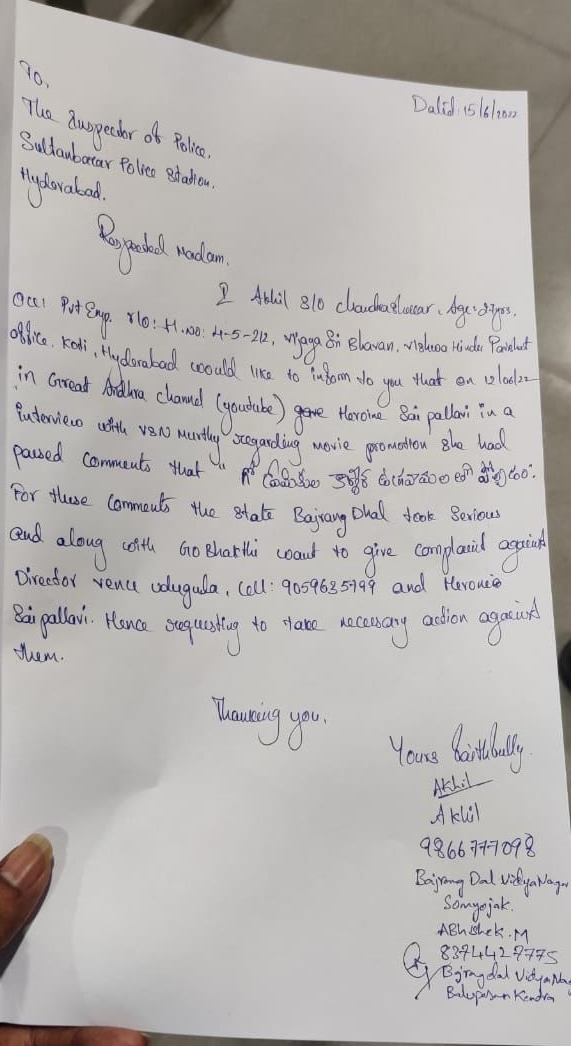 To,
Datid: 15/6/2022
The Inspector of Police.
Sultanbazar Police Station.
Hyderabad.
Respected Madam,
I Akhil S/o Chandrashekar, Age: 27yrs,
Occ: Pvt Emp. r/o: H.No: 4-5-212, Vijaya Sri Bhavan, Vishwa Hindu Parishat
office, Koti, Hyderabad would like to inform to you that on 12/06/22
in Great Andhra channel (youtube) gave Heroine Sai pallavi in a
interview with VSN Murthy regarding movie promotion she had
passed comments that "
For these comments the state Bajrang Dhal took Serious
and along with Go Bhakthi want to give complaint against
Director venu udugula, Cell: 9059635799 and Heronie
Sai pallavi. Hence requesting to take necessary action against
them.
Thanking you,
Yours faithfully.
Akhil
Akhil
9866777098
Bajrang Dal VidyaNagar
Somyojak.
ABhishek.M
8374427775
Bajrangdal VidyaNag
Kendra